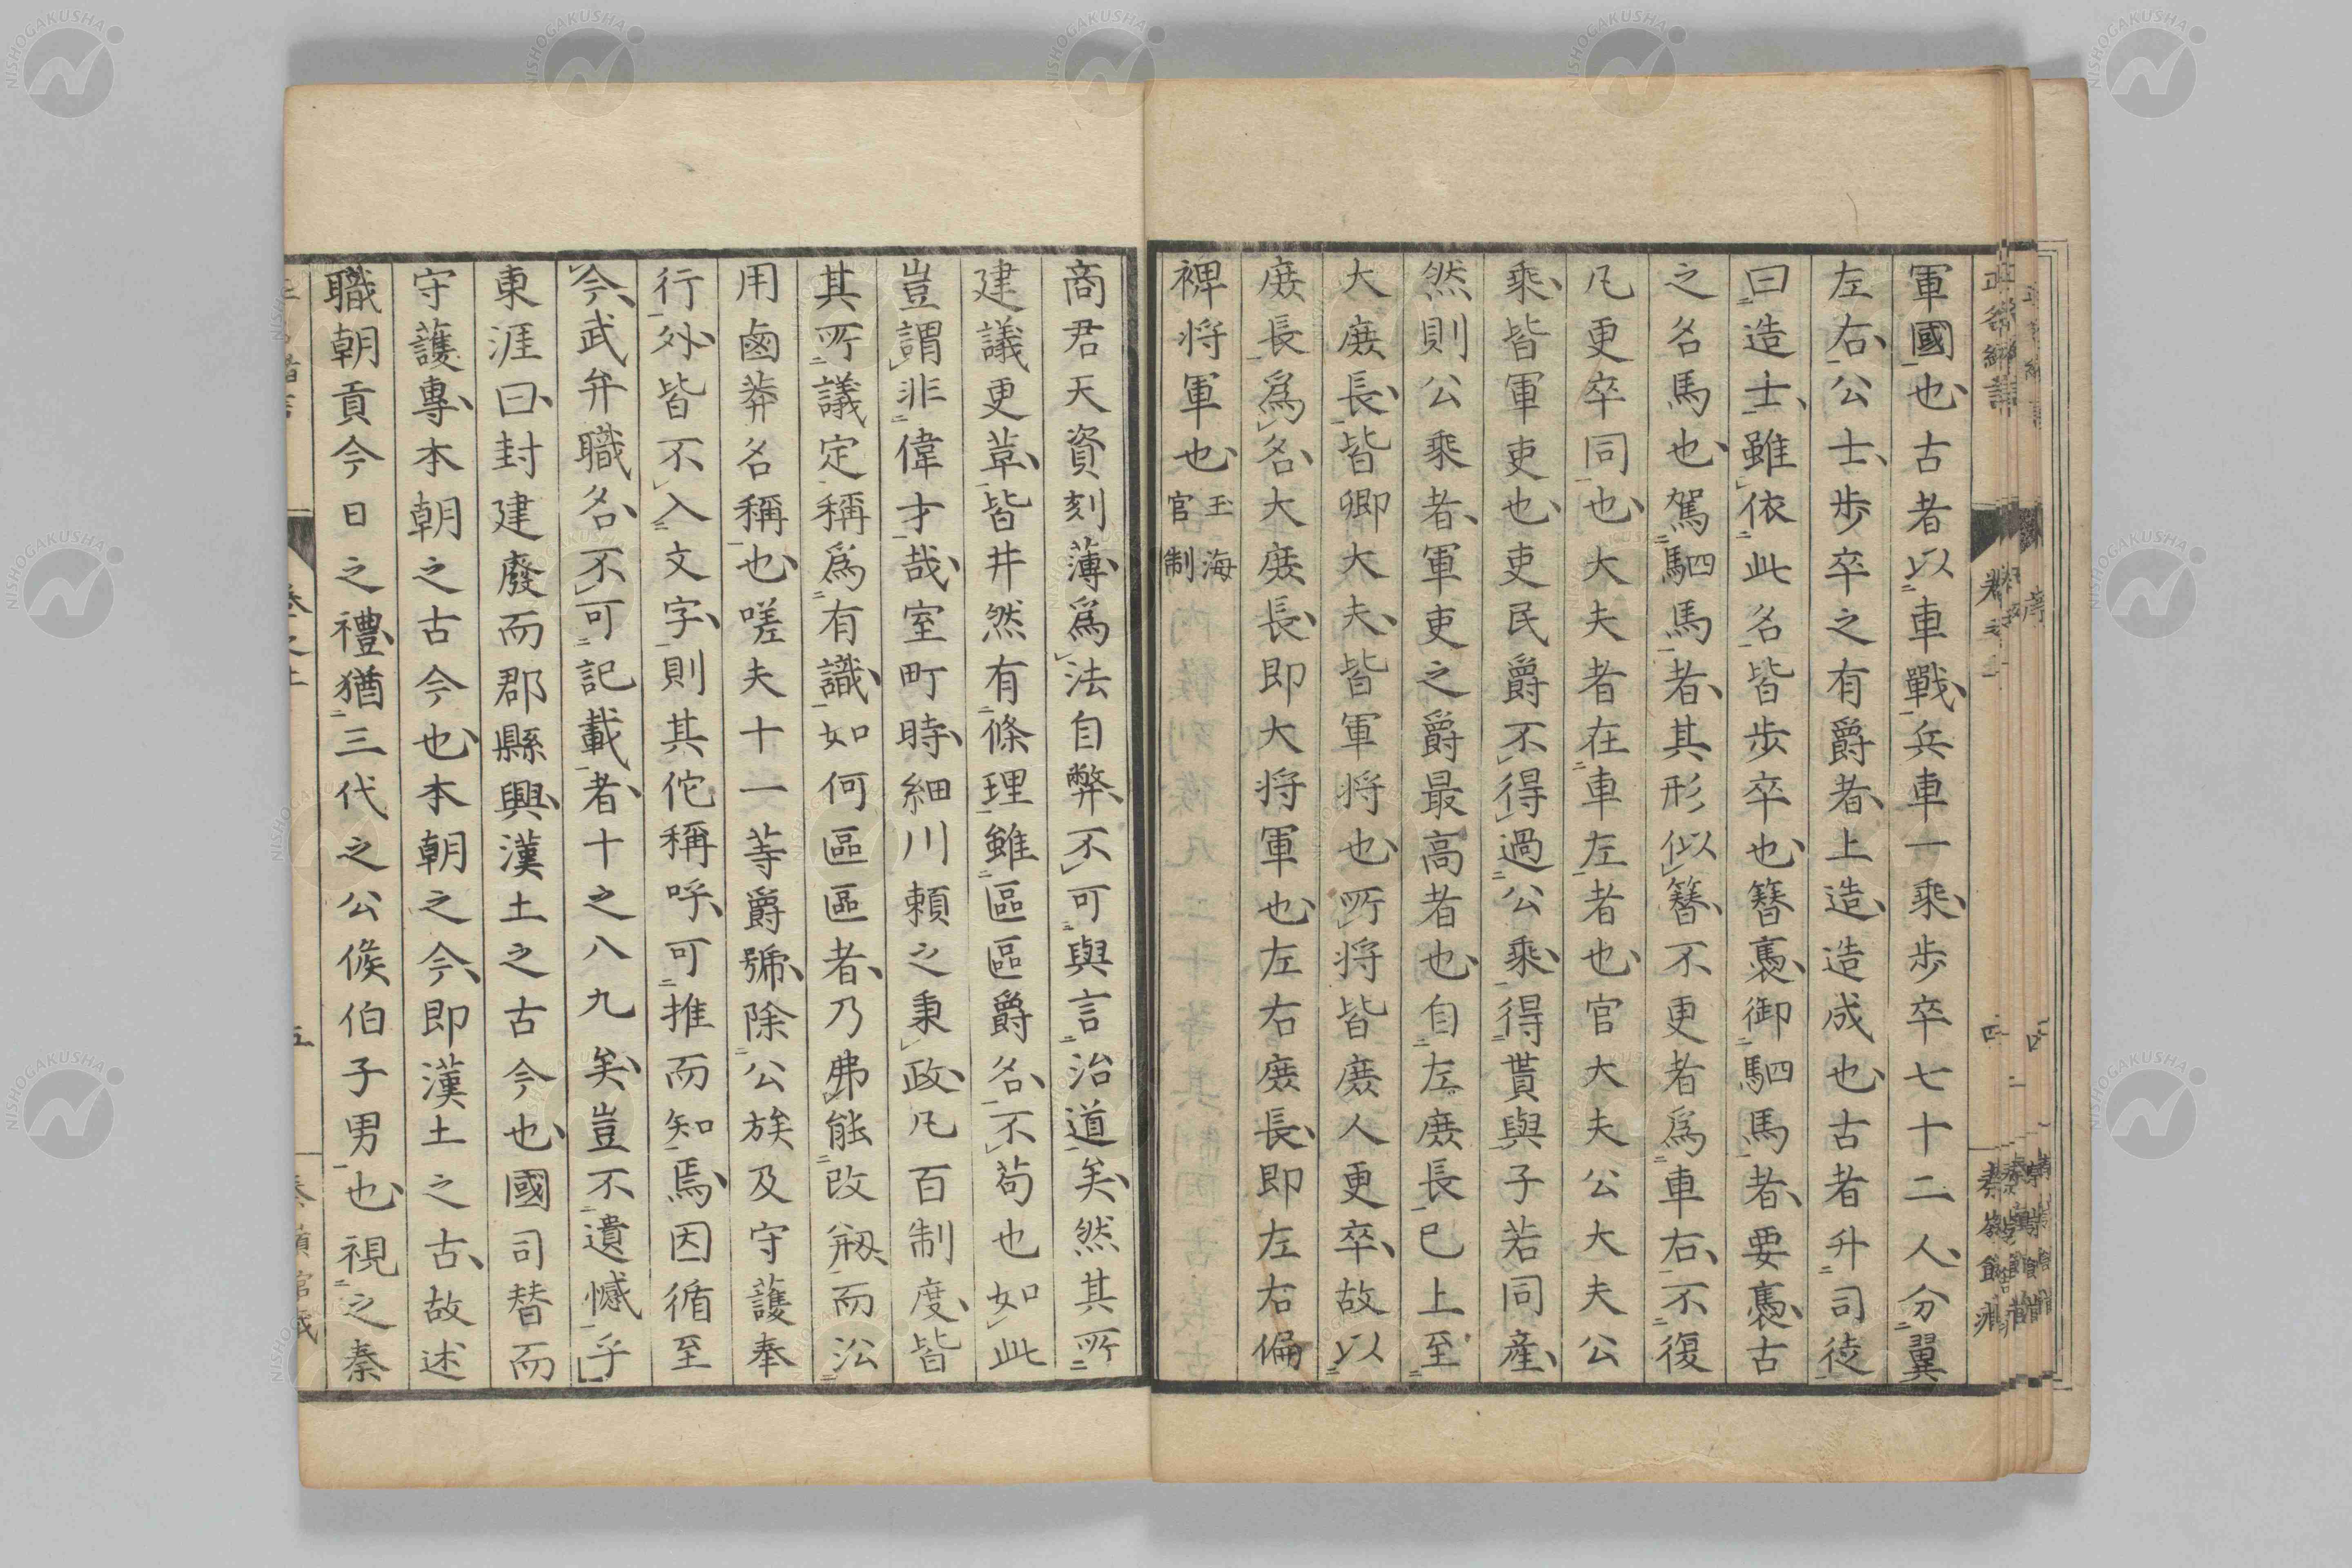 軍國也古者以車戰兵車一乘步卒七十二人分翼
左右公士步卒之有爵者上造造成也古者升司徒
曰造士雖依此名皆步卒也簪褭御駟馬者要褭古
之名馬也駕駟馬者其形似簪不更者爲車右不復
凡更卒同也大夫者在車左者也官大夫公大夫公
乘皆軍吏也吏民爵不得過公乘得貰與子若同產
然則公乘者軍吏之爵最高者也自左庶長已上至
大庶長皆卿大夫皆軍将也所将皆庶人更卒故以
庶長爲名大庶長即大将軍也左右庶長即左右偏
裨将軍也玉海官制
商君天資刻薄爲法自弊不可與言治道矣然其所
建議更革皆井然有條理雖區區爵名不苟也如此
豈謂非偉才哉室町時細川頼之秉政凡百制度皆
其所議定稱爲有識如何區區者乃弗能改剏而沿
用鹵莽名稱也嗟夫十一等爵號除公族及守護奉
行外皆不入文字則其佗稱呼可推而知焉因循至
今武弁職名不可記載者十之八九矣豈不遺憾乎
東涯曰封建廢而郡縣興漢土之古今也國司替而
守護專本朝之古今也本朝之今即漢土之古故述
職朝貢今日之禮猶三代之公侯伯子男也視之秦
NISHOGAKUSHA